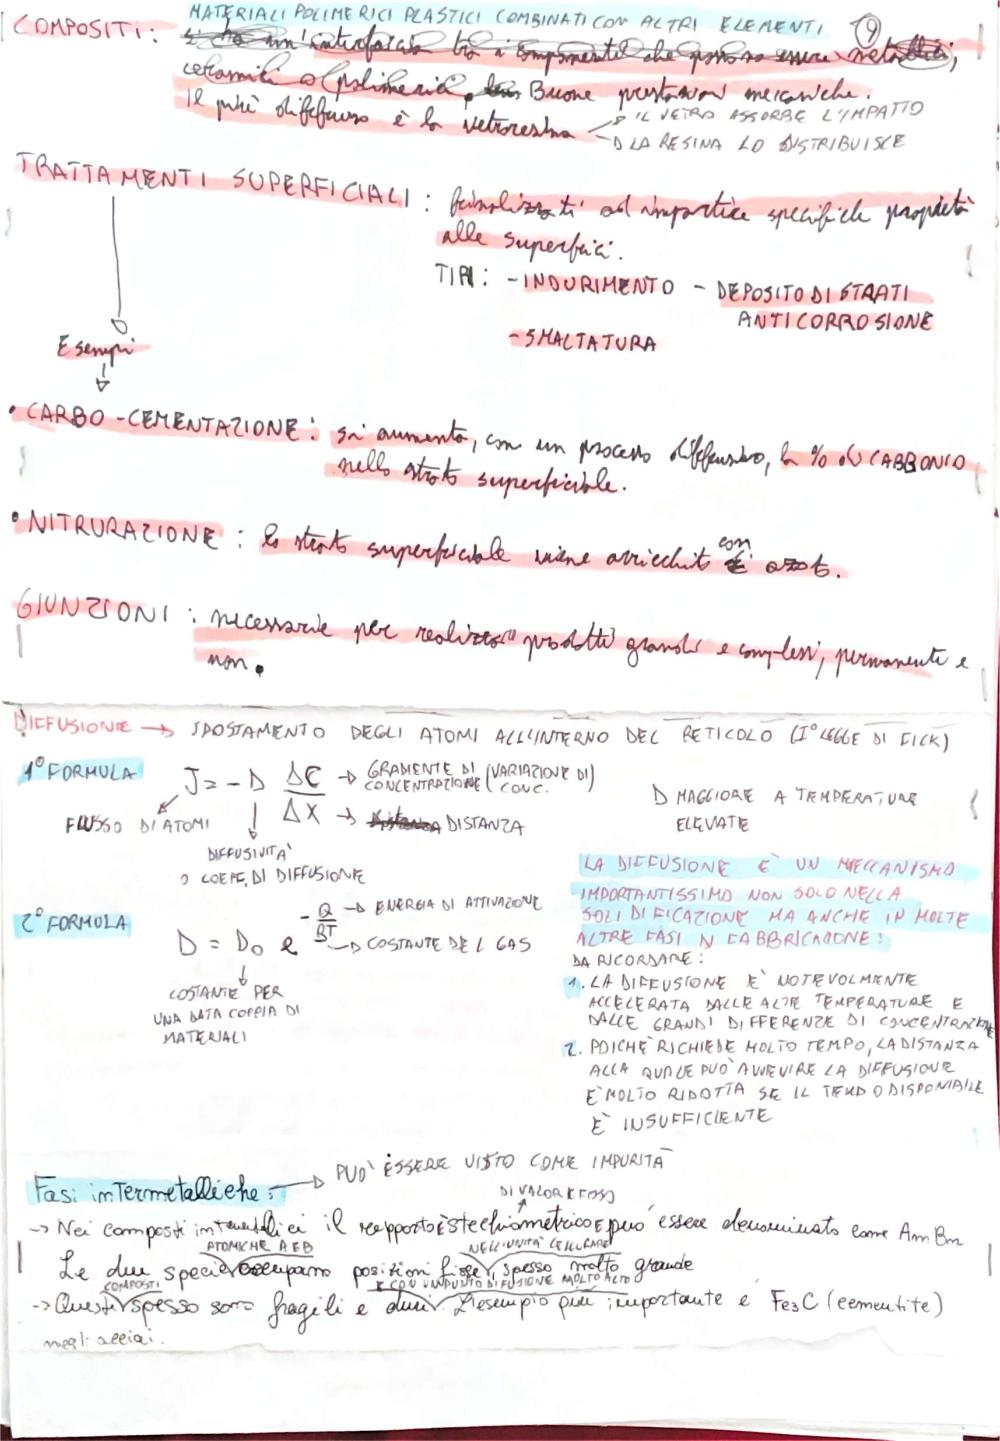 MATERIALI POLIMERICI PLASTICI COMBINATI CON ALTRI ELEMENTI 9
COMPOSITI: un'interfaccia tra i componenti che possono essere metallici,
ceramici o polimerici. Buone prestazioni meccaniche.
Il più diffuso è la vetroresina → IL VETRO ASSORBE L'IMPATTO
→ LA RESINA LO DISTRIBUISCE
TRATTAMENTI SUPERFICIALI: finalizzati ad impartire specifiche proprietà
alle superfici.
TIPI: - INDURIMENTO - DEPOSITO DI STRATI
ANTICORROSIONE
- SMALTATURA
Esempi
• CARBO-CEMENTAZIONE: si aumenta, con un processo diffusivo, la % di CARBONIO
nello strato superficiale.
• NITRURAZIONE: lo strato superficiale viene arricchito con azoto.
GIUNZIONI: necessarie per realizzare prodotti grandi e complessi, permanenti e
non.
DIFFUSIONE → SPOSTAMENTO DEGLI ATOMI ALL'INTERNO DEL RETICOLO (I° LEGGE DI FICK)
1° FORMULA J = - D ΔC → GRADIENTE DI (VARIAZIONE DI)
CONCENTRAZIONE ( CONC.
ΔX → DISTANZA
FLUSSO DI ATOMI
DIFFUSIVITA'
O COEFF. DI DIFFUSIONE
D MAGGIORE A TEMPERATURE
ELEVATE
2° FORMULA D = D₀ e -Q/RT
Q → ENERGIA DI ATTIVAZIONE
→ COSTANTE DEL GAS
COSTANTE PER
UNA DATA COPPIA DI
MATERIALI
LA DIFFUSIONE E' UN MECCANISMO
IMPORTANTISSIMO NON SOLO NELLA
SOLIDIFICAZIONE MA ANCHE IN MOLTE
ALTRE FASI DI FABBRICAZIONE:
DA RICORDARE:
1. LA DIFFUSIONE E' NOTEVOLMENTE
ACCELERATA DALLE ALTE TEMPERATURE E
DALLE GRANDI DIFFERENZE DI CONCENTRAZIONE
2. POICHE' RICHIEDE MOLTO TEMPO, LA DISTANZA
ALLA QUALE PUO' AVVENIRE LA DIFFUSIONE
E' MOLTO RIDOTTA SE IL TEMPO DISPONIBILE
E' INSUFFICIENTE
Fasi intermetalliche: → PUO' ESSERE VISTO COME IMPURITA'
DI VALORE FISSO
→ Nei composti intermetallici il rapporto è stechiometrico e può essere denominato come AmBn
ATOMICHE A E B NELL'UNITA' CELLULARE
Le due specie occupano posizioni fisse, spesso molto grande
COMPOSTI E CON UN PUNTO DI FUSIONE MOLTO ALTO
→ Questi spesso sono fragili e duri L'esempio più importante è Fe₃C (cementite)
negli acciai.